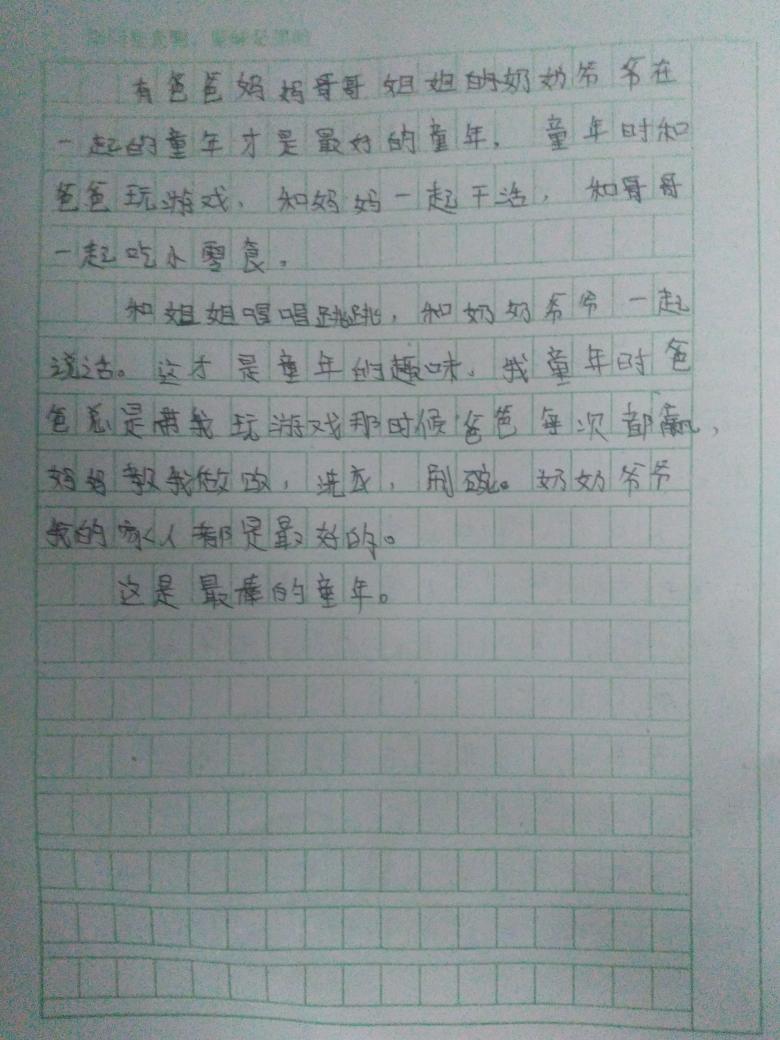 有爸爸妈妈哥哥姐姐的奶奶爷爷在
一起的童年才是最好的童年，童年时和
爸爸玩游戏，和妈妈一起干活，和哥哥
一起吃小零食。
和姐姐唱唱跳跳，和奶奶爷爷一起
说话。这才是童年的趣味，我童年时爸
爸总是带我玩游戏那时候爸爸每次都赢，
妈妈教我做饭，洗衣，刷碗。奶奶爷爷
我的家人都是最好的。
这是最棒的童年。